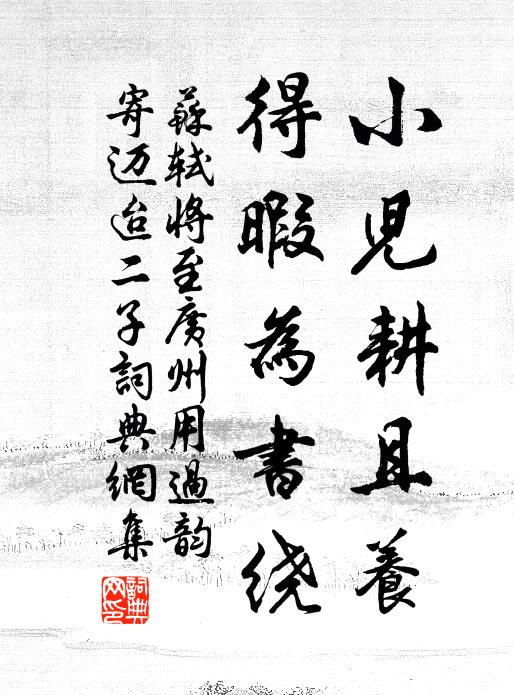 小児耕且養
得暇為書绕
蘇轼将至廣州用過韵
寄迈迨二子詞典網集
詞典网印